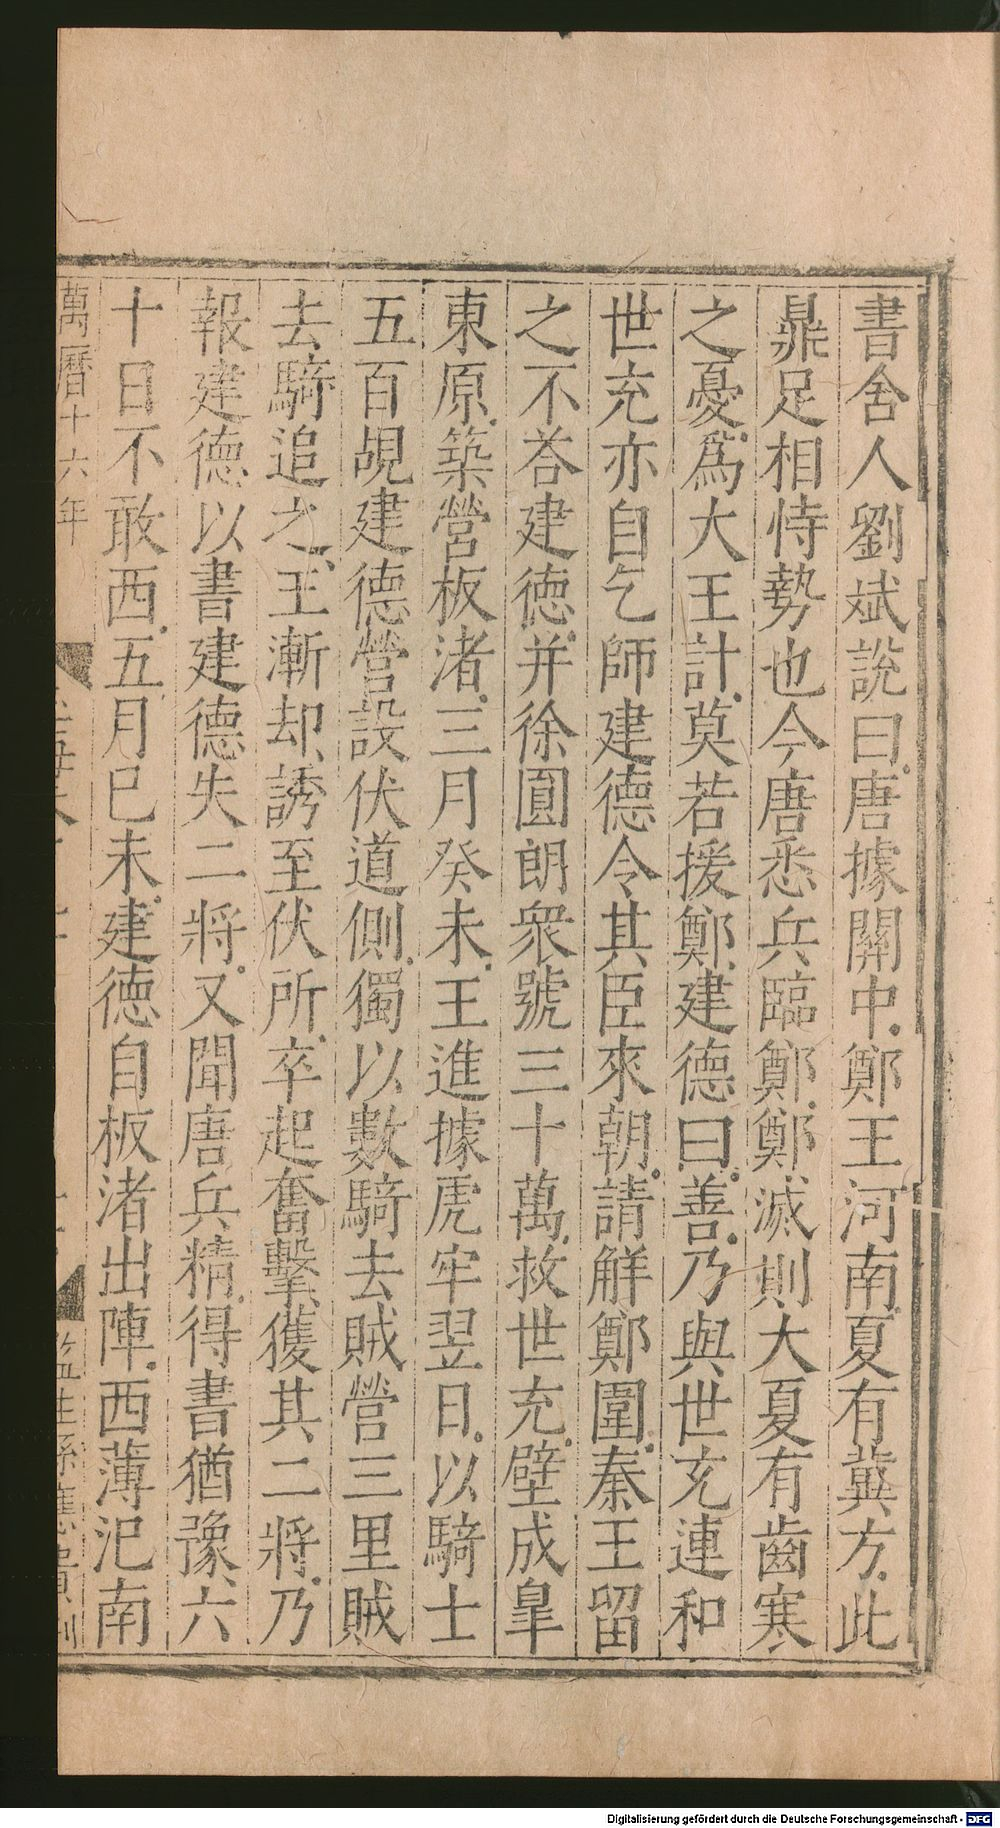 書舍人劉斌說曰唐據關中鄭王河南夏有冀方此
鼎足相恃勢也今唐悉兵臨鄭鄭滅則大夏有齒寒
之憂為大王計莫若援鄭建德曰善乃與世充連和
世充亦自乞師建德令其臣來朝請解鄭圍秦王留
之不荅建德并徐圓朗衆號三十萬救世充壁成臯
東原築營板渚三月癸未王進據虎牢翌日以騎士
五百覘建德營設伏道側獨以數騎去賊營三里賊
去騎追之王漸却誘至伏所卒起奮擊獲其二將乃
報建德以書建德失二將又聞唐兵精得書猶豫六
十日不敢西五月巳未建德自板渚出陣西薄汜南
萬曆十六年
監生孫應
Digitalisierung gefördert durch die Deutsche Forschungsgemeinschaft - DFG